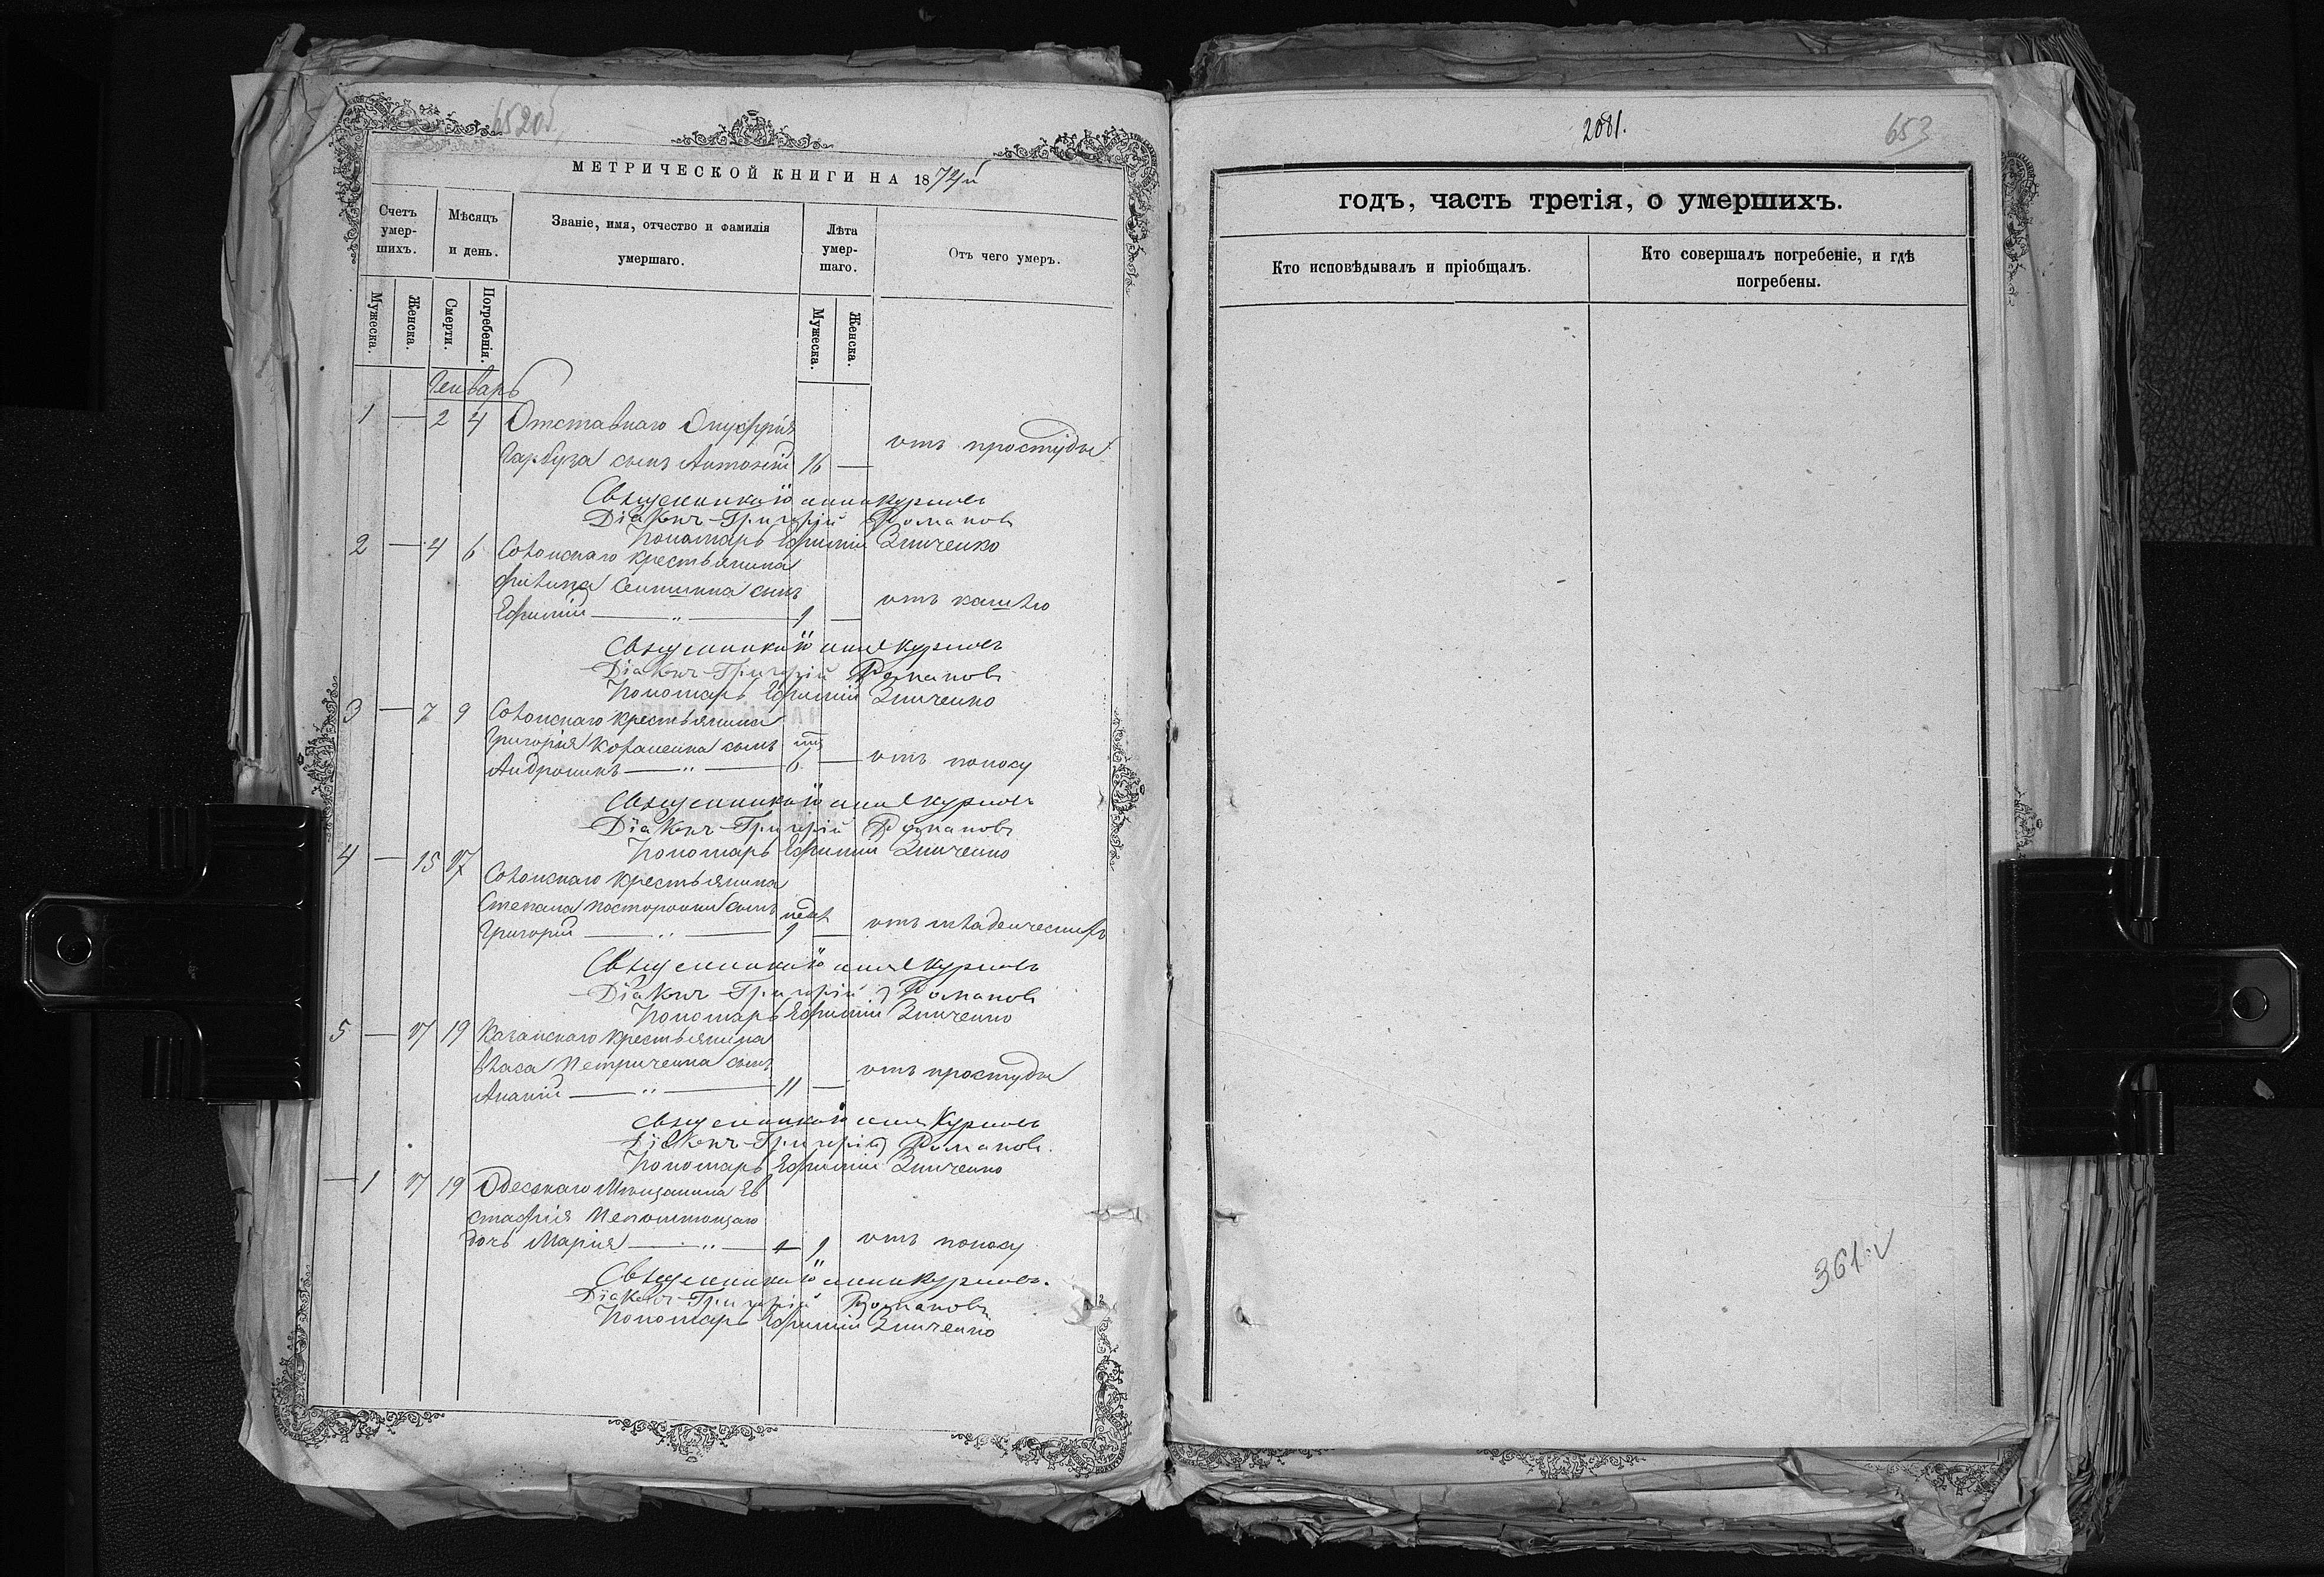 2081.
653
МЕТРИЧЕСКОЙ КНИГИ НА 1872й
годъ, часть третія, о умершихъ.
Счетъ умер-шихъ.
Мѣсяцъ и день.
Званіе, имя, отчество и фамилія умершаго.
Лѣта умер-шаго.
Отъ чего умеръ.
Кто исповѣдывалъ и пріобщалъ.
Кто совершалъ погребеніе, и гдѣ погребены.
Мужеска.
Женска.
Смерти.
Погребенія.
Мужеска.
Женска.
Генварь
1 — 2 4 Отставнаго Онуфрія
Гарбуза сынъ Антоній 16 — отъ простуды
Священникъ Іоаннъ Курловъ
Діаконъ Григорій Романовъ
Пономарь Ефимій Зинченко
2 — 4 6 Солонскаго крестьянина
Филипа сынъ
Ефимій — " — 1 — отъ кашлю
Священникъ Іоаннъ Курловъ
Діаконъ Григорій Романовъ
Пономарь Ефимій Зинченко
3 — 7 9 Солонскаго крестьянина
Григорія Коваленка сынъ
Андроникъ — " — 6 — отъ поносу
Священникъ Іоаннъ Курловъ
Діаконъ Григорій Романовъ
Пономарь Ефимій Зинченко
4 — 15 17 Солонскаго крестьянина
Степана сынъ недѣл
Григорій — " — 1 — отъ младенческихъ
Священникъ Іоаннъ Курловъ
Діаконъ Григорій Романовъ
Пономарь Ефимій Зинченко
5 — 17 19 крестьянина
Власа Петриченка сынъ
Ананій — " — 11 — отъ простуды
Священникъ Іоаннъ Курловъ
Діаконъ Григорій Романовъ.
Пономарь Ефимій Зинченко
— 1 17 19 Одесскаго Мѣщанина Ев
стафія
дочь Марія — " — 1 отъ поносу
Священникъ Іоаннъ Курловъ.
Діаконъ Григорій Романовъ
Пономарь Ефимій Зинченко
361